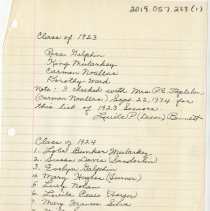 2019.057.233(1)
Class of 1923
Ross Galphin
King Mularkey
Carmen Noellas
Dorothy Ward
Note: I checked with Mrs P.E. Stapleton
(Carmen Noellas) Sept. 22, 1974 for
this list of 1923 Seniors.
Lucille P. (Dixon) Bennett
Class of 1924
1. Lola Bunker Mularkey
2. Susan Davis
3. Evelyn Galphin
4. Mary Hughes
5. Lucy Nolan
6. Lucile
7. Mary Frances Silva